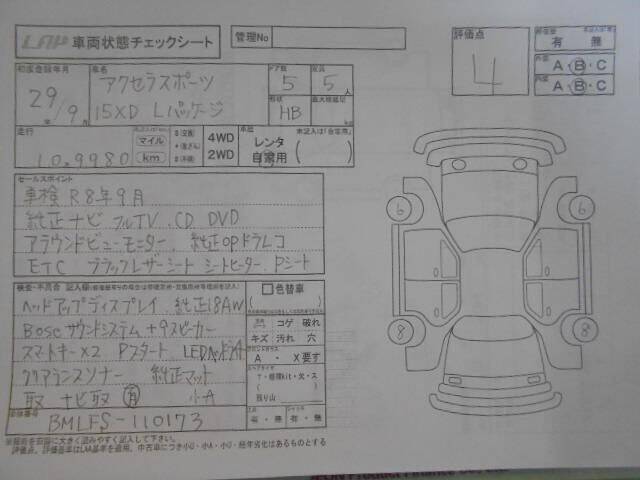 LAP 車両状態チェックシート
管理No
評価点
4
修復歴
有 ・ 無
外装 A・B・C
内装 A・B・C
初度登録年月
29年 9月
車名
アクセラスポーツ
15XD Lパッケージ
ドア数
5
定員
5人
形状
HB
最大積載量
走行
109980
マイル
km
4WD
2WD
車歴
レンタ
自家用
未記入は「自家用」
セールスポイント
車検 R8年9月
純正ナビ フルTV CD DVD
アラウンドビューモニター 純正OPドラレコ
ETC ブラックレザーシート シートヒーター Pシート
検査・不具合 記入欄
ヘッドアップディスプレイ 純正18AW
Boseサウンドシステム+9スピーカー
スマートキー×2 Pスタート
クリアランスソナー 純正マット
取 ナビ取 有 小A
色替車
コゲ 破れ
キズ 汚れ 穴
A ・ X要す
残り山
有・無 有・無
車体番号
BMLFS-110173
6
6
8
8
※職員を右図に大きく読みやすく記入して下さい。